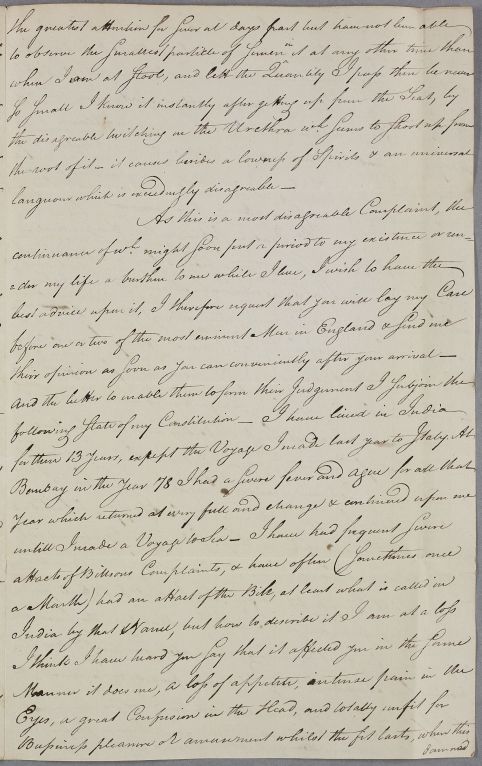 the greatest attention for several days past but have not been able
to observe the smallest particle of semen in it at any other time than
when I am at Stool, and let the Quantity I pass then be never
so small I know it instantly after getting up from the Seat, by
the disagreeable twitching in the Urethra wh. seems to shoot up from
the root of it – it causes besides a lowness of Spirits & an universal
languor which is exceedingly disagreeable –
As this is a most disagreeable Complaint, the
continuance of wh. might soon put a period to my existence or ren-
-der my life a burthen to me while I live, I wish to have the
best advice upon it, I therefore request that you will lay my Case
before one or two of the most eminent Men in England & send me
their opinion as soon as you can conveniently after your arrival –
And the better to enable them to form their Judgement I subjoin the
following State of my Constitution – I have lived in India
for these 13 Years, except the Voyage I made last year to Italy. At
Bombay in the Year 78 I had a severe fever and ague for all that
Year which returned at every full and change & continued upon me
untill I made a Voyage to Sea – I have had frequent severe
attacks of Billious Complaints, & have often (sometimes once
a Month) had an attack of the Bile, at least what is called in
India by that Name, but how to describe it I am at a loss
I think I have heard you say that it affected you in the same
Manner it does me, a loss of appetite, intense pain in the
Eyes, a great Confusion in the Head, and totally unfit for
Business pleasure or amusement whilst the fit lasts, when this
damned